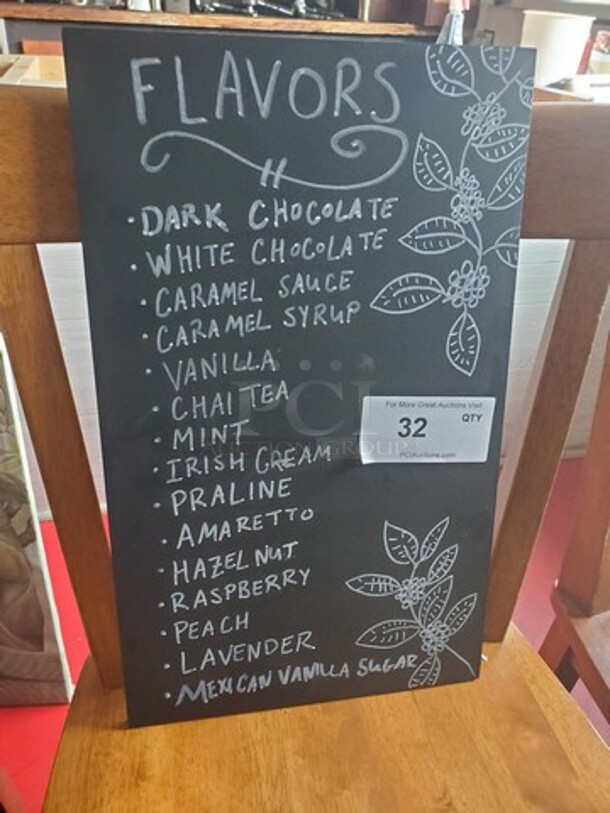 FLAVORS
· DARK CHOCOLATE
· WHITE CHOCOLATE
· CARAMEL SAUCE
· CARAMEL SYRUP
· VANILLA
· CHAI TEA
· MINT
· IRISH CREAM
· PRALINE
· AMARETTO
· HAZELNUT
· RASPBERRY
· PEACH
· LAVENDER
· MEXICAN VANILLA SUGAR
For More Great Auctions Visit
32 QTY
PCIAuctions.com
PCI
AUCTION GROUP